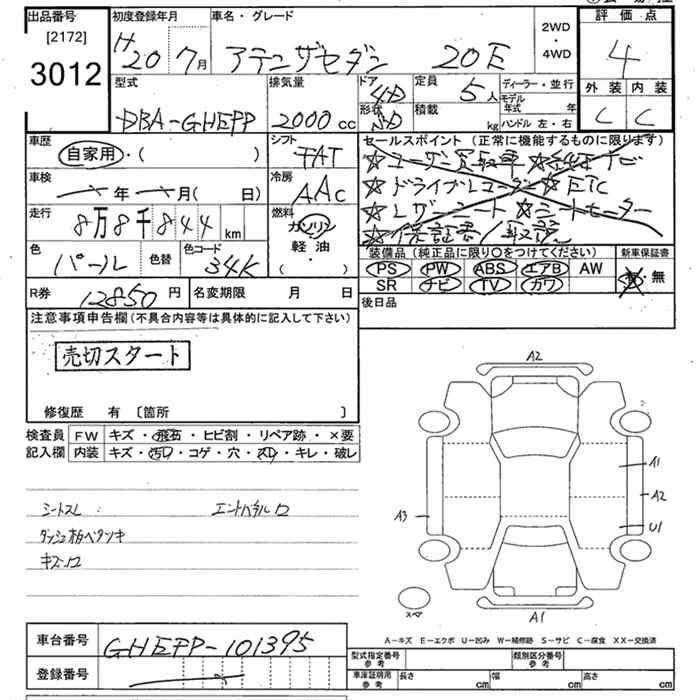 出品番号 初度登録年月 車名・グレード 2WD・4WD 評価点
[2172] H20 7月 アテンザセダン 20E 4
3012
型式 排気量 ドア 4D 定員 5人 ディーラー・並行 外装 内装
DBA-GHEFP 2000cc 形状 SD 積載 kg モデル年式 年 C C
ハンドル 左・右
車歴 シフト セールスポイント (正常に機能するものに限ります)
自家用・( ) FAT
☆ユーザー買取車☆純正ナビ
車検 年 月( 日) 冷房 AAC
☆ドライブレコーダー☆ETC
☆レザーシート☆シートヒーター
☆保証書/取説
走行 8万8千844km 燃料 ガソリン
軽油
・( )
色 パール 色替 色コード 34K
装備品 (純正品に限り○をつけてください) 新車保証書
PS PW ABS エアB AW 有・無
SR ナビ TV カワ
R券 12850円 名変期限 月 日
後日品
注意事項申告欄 (不具合内容等は具体的に記入して下さい)
売切スタート
修復歴 有 [箇所 ]
検査員 FW キズ・飛石・ヒビ割・リペア跡・×要
記入欄 内装 キズ・汚レ・コゲ・穴・スレ・キレ・破レ
A2
A1
A2
A3
U1
シートスレ
ダッシュ板ベタツキ
キズ・ワ
スペア
A1
A-キズ E-エクボ U-凹み W-補修跡 S-サビ C-腐食 XX-交換済
車台番号 GHEFP-101395
登録番号
型式指定番号 参考 類別区分番号 参考
車庫証明用 参考 長さ cm 幅 cm 高さ cm